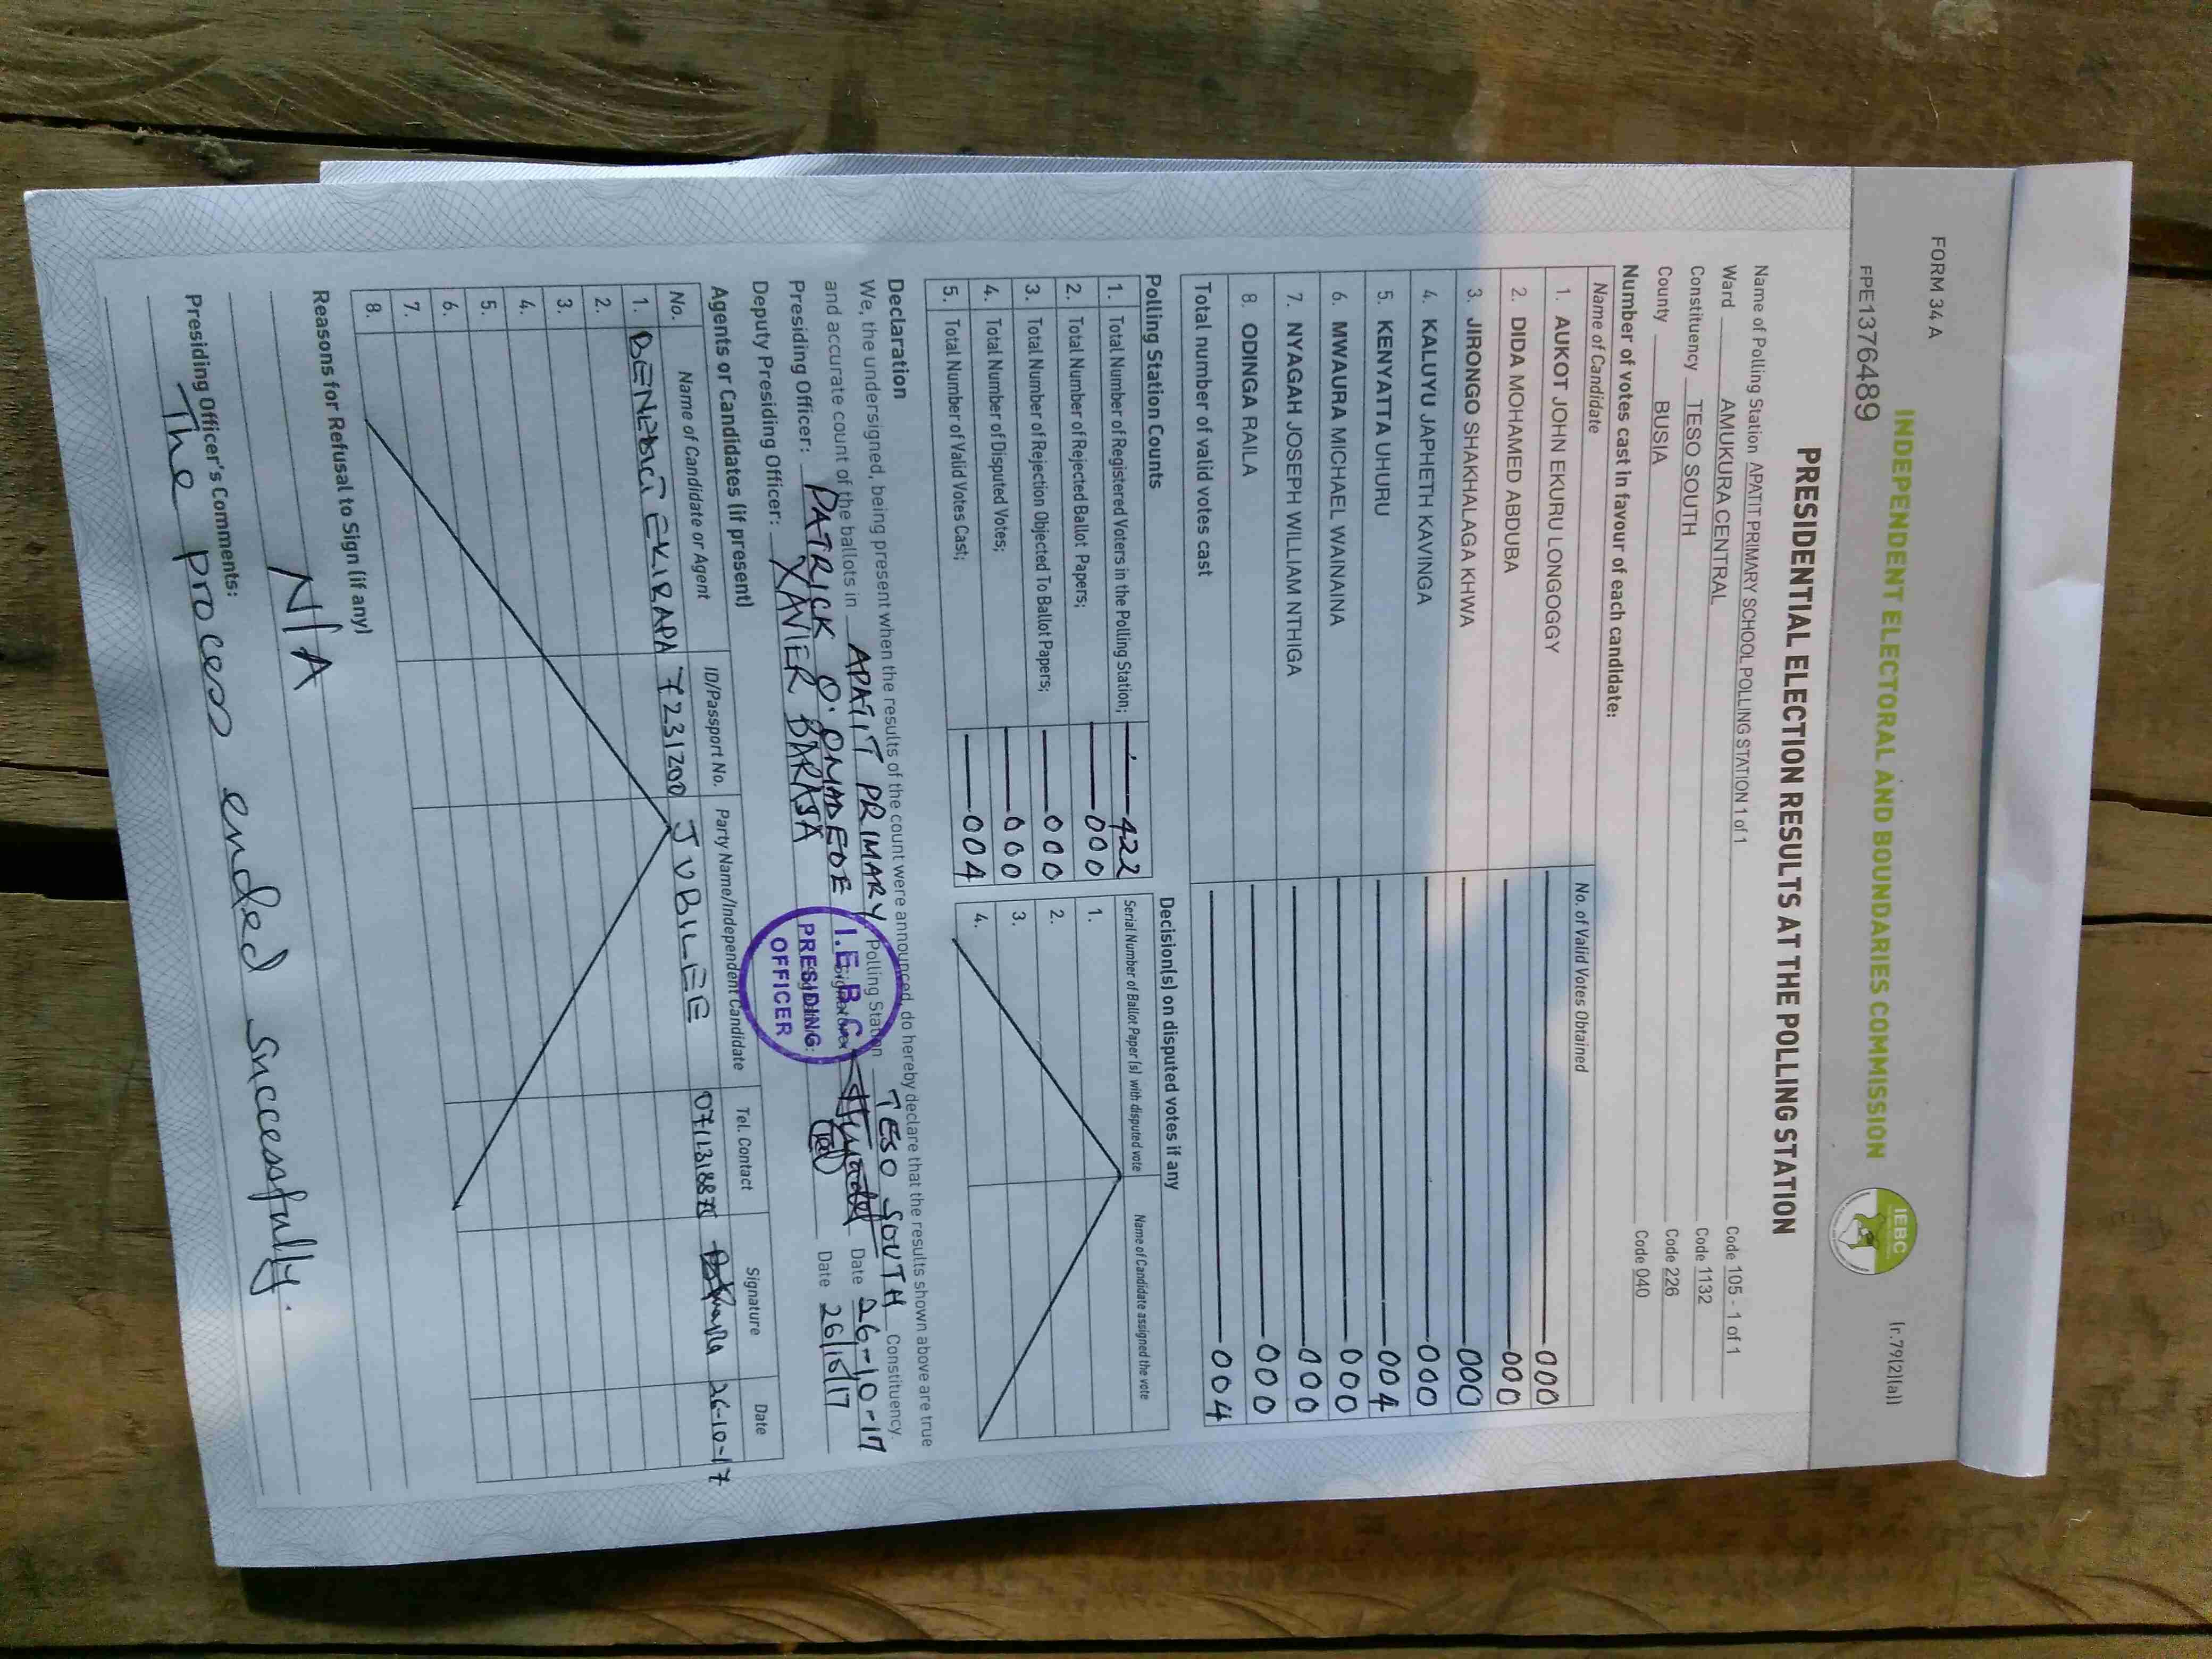 FORM 34 A
(r.79(2)(a))
INDEPENDENT ELECTORAL AND BOUNDARIES COMMISSION
IEBC
FPE1376489
PRESIDENTIAL ELECTION RESULTS AT THE POLLING STATION
Name of Polling Station APATIT PRIMARY SCHOOL POLLING STATION 1 of 1 Code 105 - 1 of 1
Ward AMUKURA CENTRAL Code 1132
Constituency TESO SOUTH Code 226
County BUSIA Code 040
Number of votes cast in favour of each candidate:
Name of Candidate No. of Valid Votes Obtained
1. AUKOT JOHN EKURU LONGOGGY 000
2. DIDA MOHAMED ABDUBA 000
3. JIRONGO SHAKHALAGA KHWA 000
4. KALUYU JAPHETH KAVINGA 000
5. KENYATTA UHURU 004
6. MWAURA MICHAEL WAINAINA 000
7. NYAGAH JOSEPH WILLIAM NTHIGA 000
8. ODINGA RAILA 000
Total number of valid votes cast 004
Polling Station Counts
1. Total Number of Registered Voters in the Polling Station; 422
2. Total Number of Rejected Ballot Papers; 000
3. Total Number of Rejection Objected To Ballot Papers; 000
4. Total Number of Disputed Votes; 000
5. Total Number of Valid Votes Cast; 004
Decision(s) on disputed votes if any
Serial Number of Ballot Paper (s) with disputed vote Name of Candidate assigned the vote
1.
2.
3.
4.
Declaration
We, the undersigned, being present when the results of the count were announced, do hereby declare that the results shown above are true
and accurate count of the ballots in APATIT PRIMARY Polling Station TESO SOUTH Constituency.
Presiding Officer: PATRICK O. OMADEDE Date 26-10-17
Deputy Presiding Officer: XAVIER BARASA Date 26/10/17
I.E.B.C
PRESIDING
OFFICER
Agents or Candidates (if present)
No. Name of Candidate or Agent ID/Passport No. Party Name/Independent Candidate Tel. Contact Signature Date
1. BENEDICT EKIRAPA 7231200 JUBILEE 26-10-17
2.
3.
4.
5.
6.
7.
8.
Reasons for Refusal to Sign (if any)
N/A
Presiding Officer's Comments:
The process ended successfully.